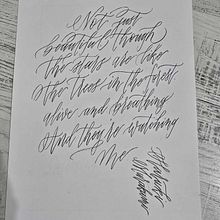 Not just
beautiful though
the stars are like
the trees in the well
alive and breathing
And they're watching
me